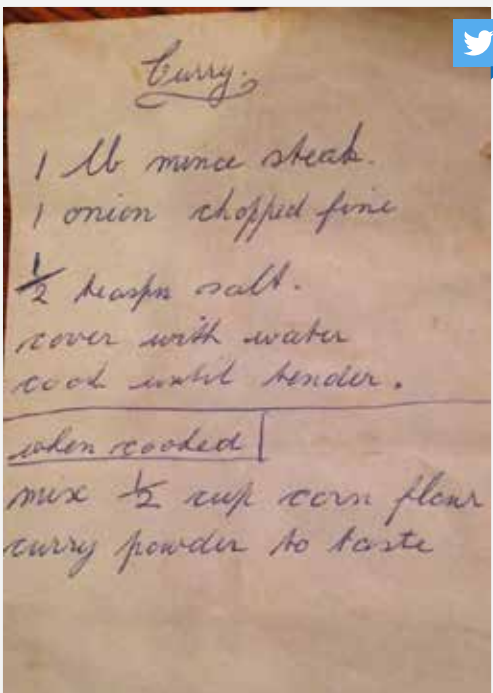 Curry.
1 lb mince steak.
1 onion chopped fine
1/2 teaspn salt.
cover with water
cook until tender.
when cooked
mix 1/2 cup corn flour
curry powder to taste